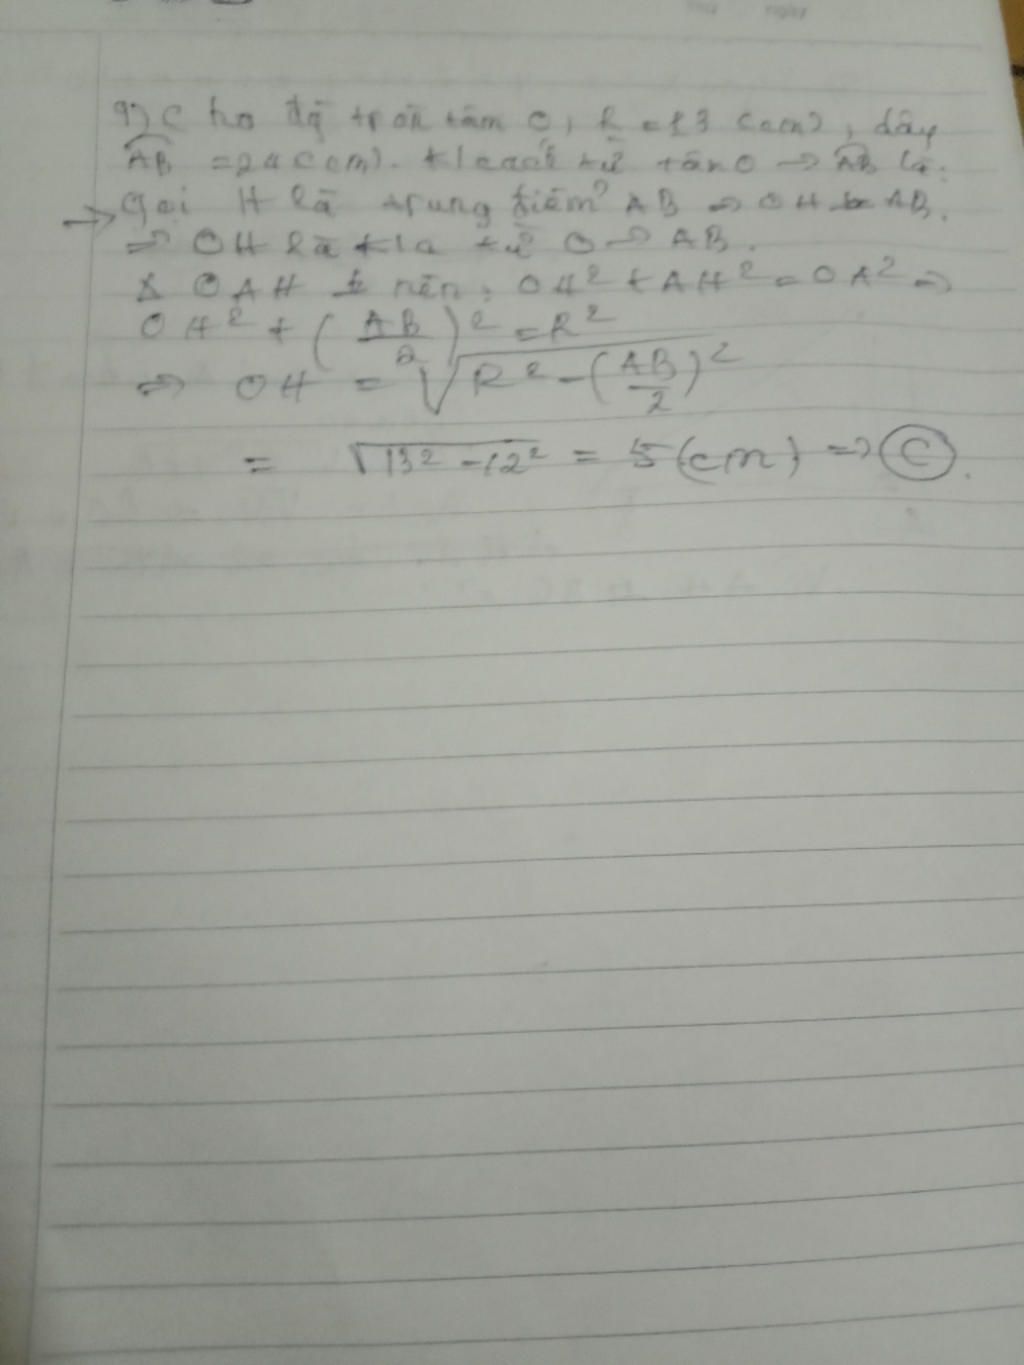 9) Cho độ tròn tâm O, R = 13 (cm), dây
AB = 24 (cm). từ tâm O → AB là:
→ Gọi H là trung điểm AB ⇒ OH AB.
⇒ OH là k/c từ O → AB.
Δ OAH nên: OH² + AH² = OA² ⇒
OH² + (AB/2)² = R²
⇒ OH = √R² - (AB/2)²
= √13² - 12² = 5 (cm) ⇒ C.